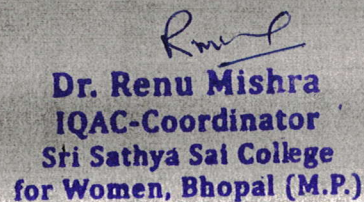 Dr. Renu Mishra
IQAC-Coordinator
Sri Sathya Sai College
for Women, Bhopal (M.P.)